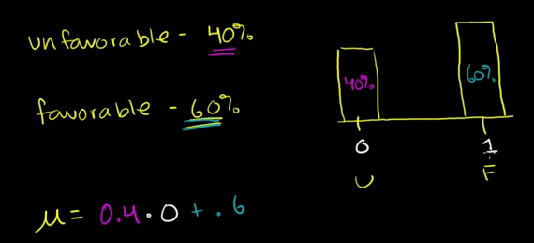 unfavorable - 40%
favorable - 60%
μ = 0.4 · 0 + .6
40%
60%
0
1
U
F